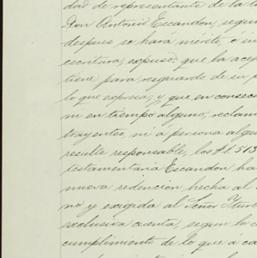 dad de representante de la t
Don Antonio Escandon, segun
despues se hará mérito, é in
escritura, expuso: que la acep
tiene para resguardo de su p
lo que expresa; y que en consec
ni en tiempo alguno, reclam
trayentes, ni a persona algun
resulte responsable, los $1.513
testamentaria Escandon ha
nueva redencion hecha al
no y exigida al Señor Iturb
exclusiva cuenta, segun lo c
cumplimiento de lo que a ca